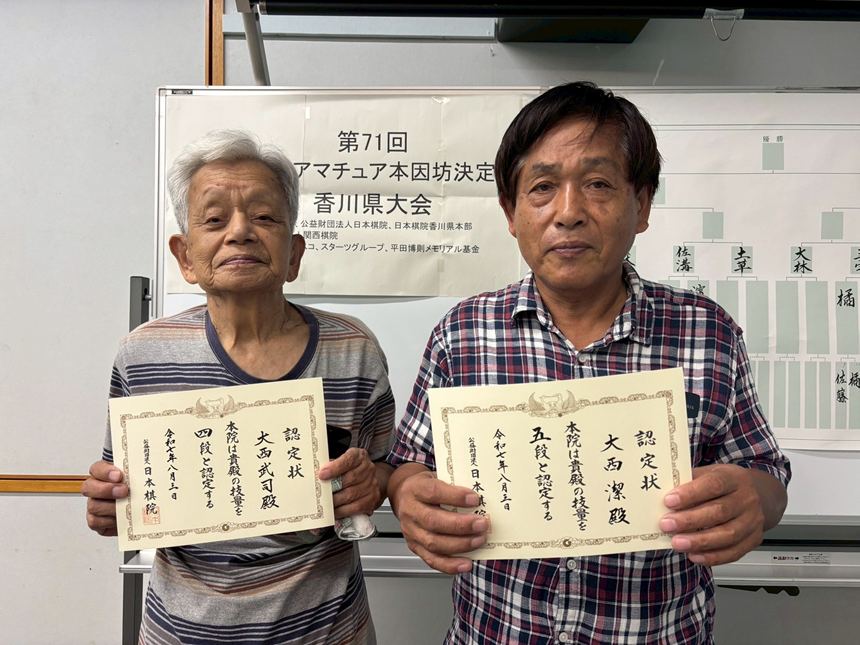 第71回
アマチュア本因坊決定
香川県大会
公益財団法人日本棋院、日本棋院香川県本部
関西棋院
コ、スターツグループ、平田博則メモリアル基金
優勝
佐溝
土草
大林
橘
佐藤
橘
認定状
大西武司殿
本院は貴殿の技量を
四段と認定する
令和七年八月三日
公益財団法人日本棋院
認定状
大西潔殿
本院は貴殿の技量を
五段と認定する
令和七年八月三日
公益財団法人日本棋院